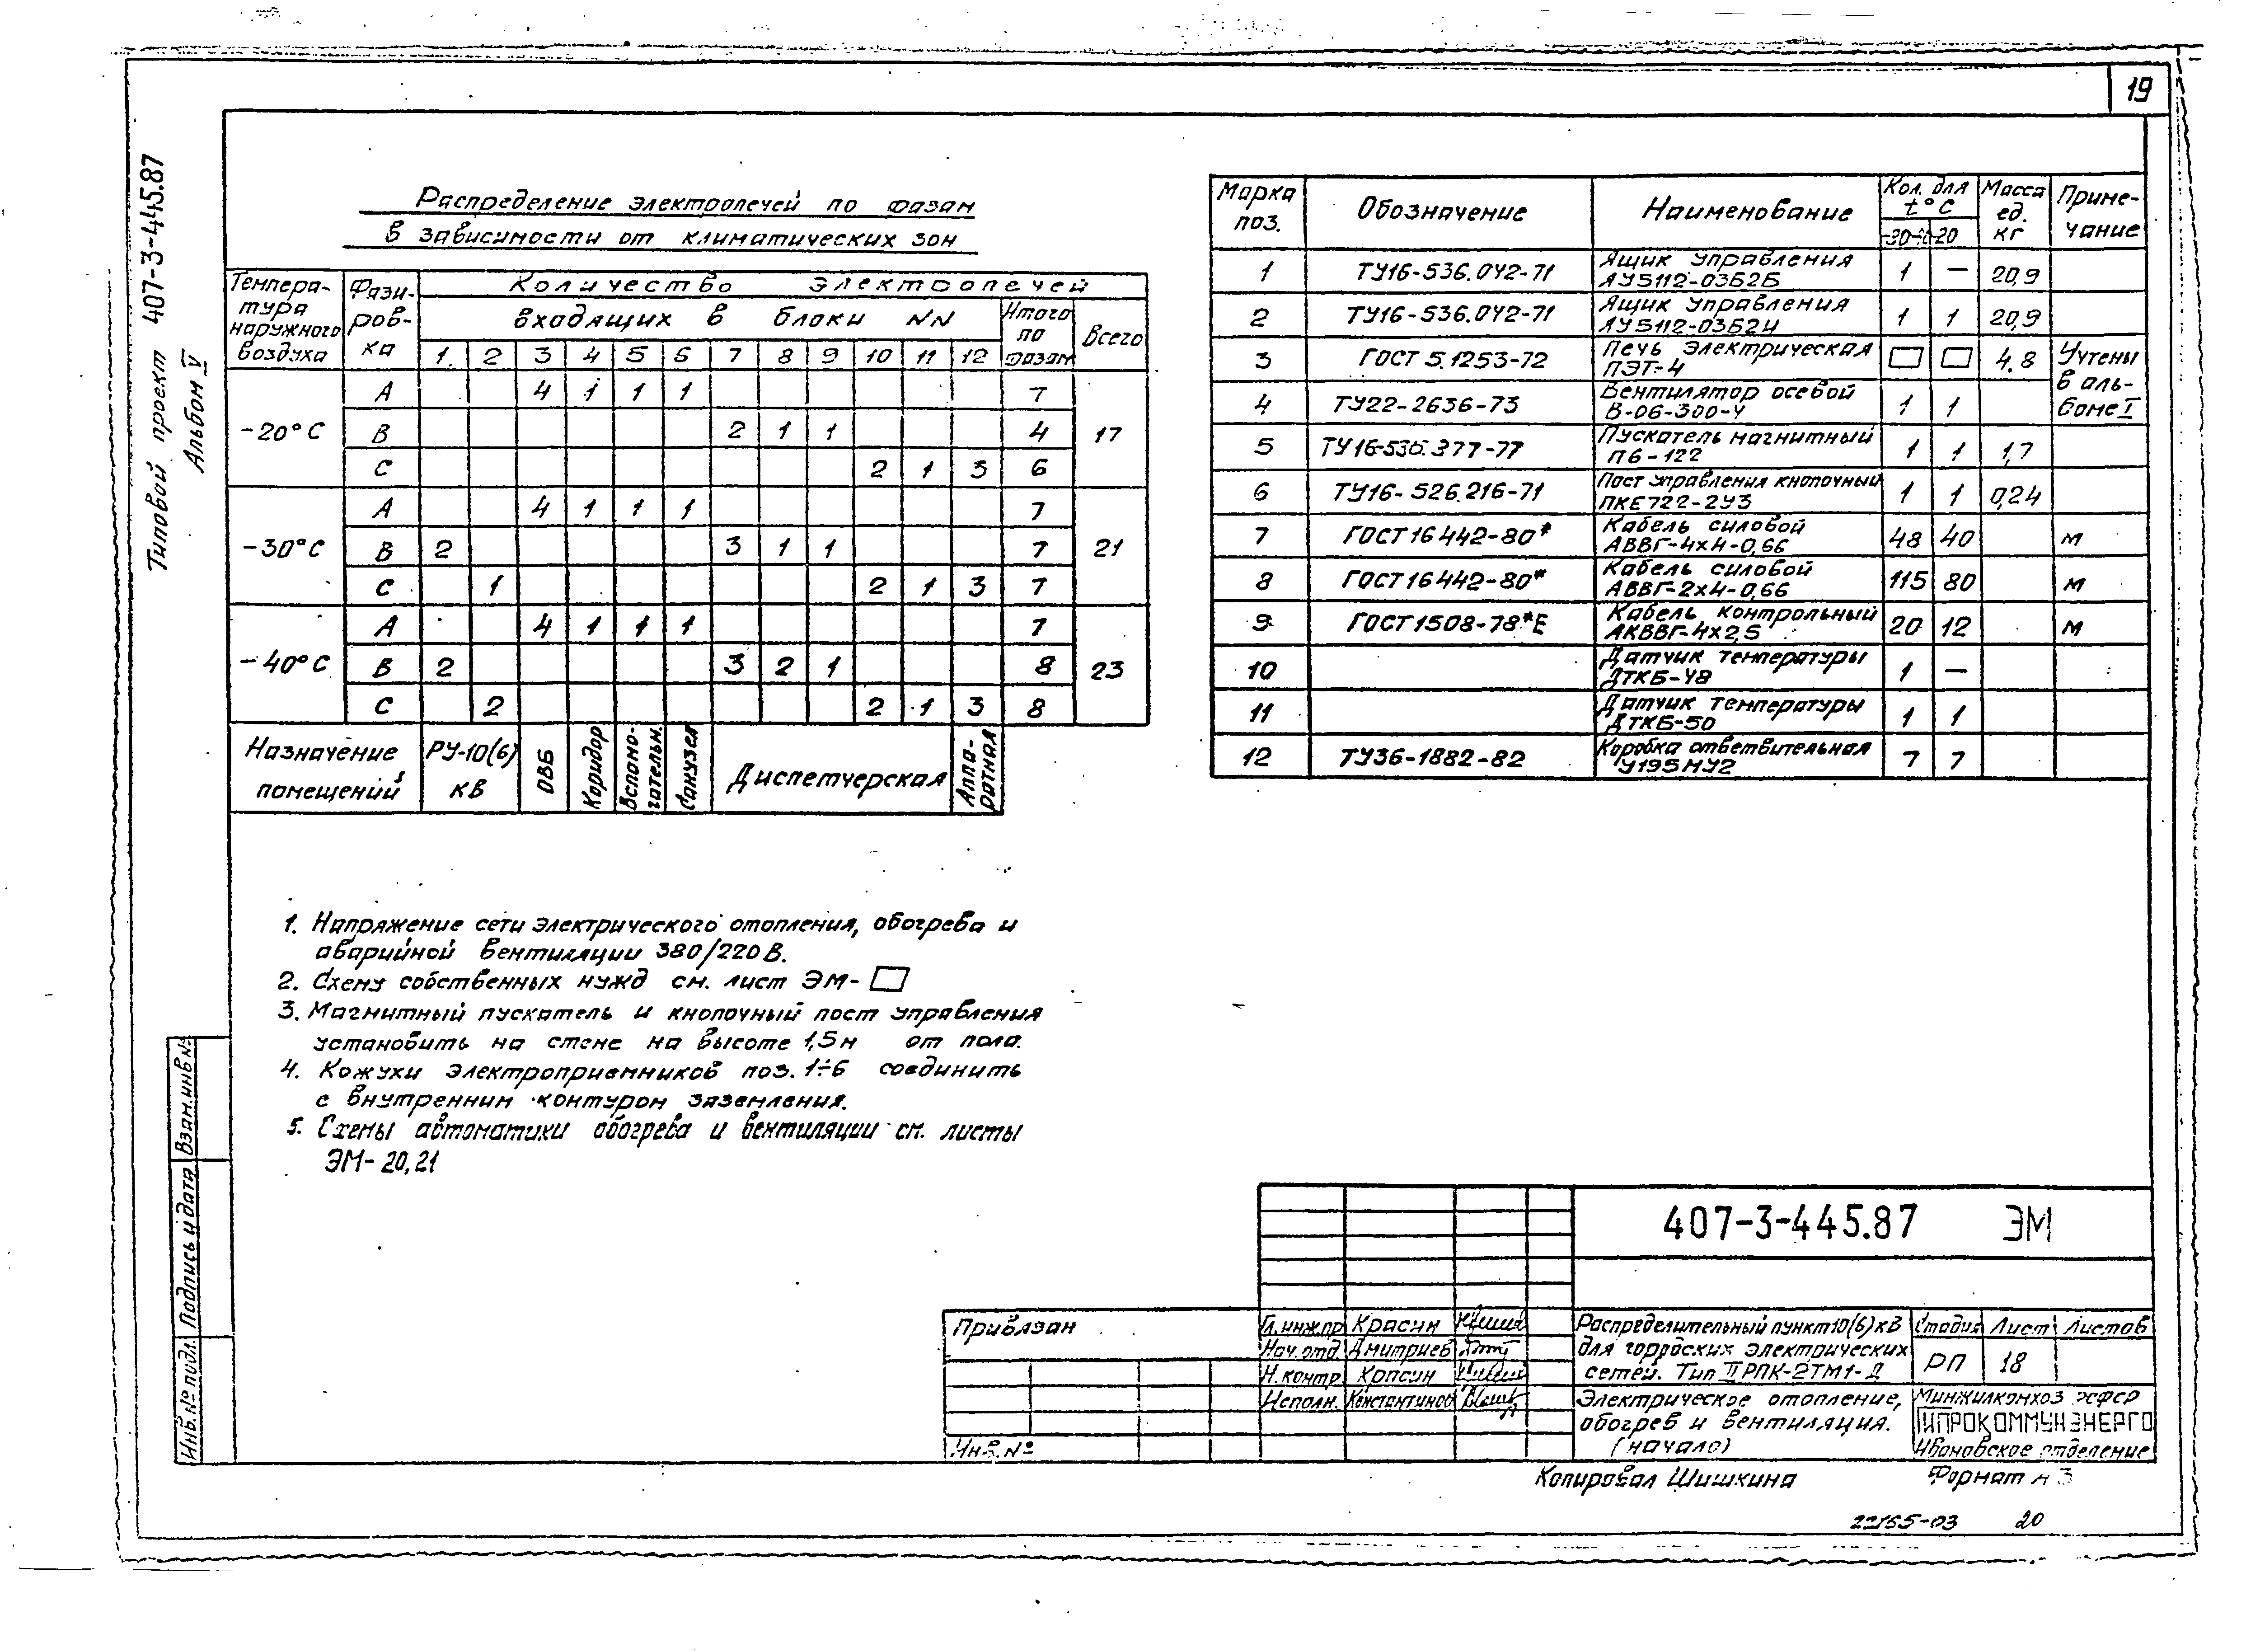 19
Типовой проект 407-3-445.87
Альбом V
Распределение электропечей по фазам
в зависимости от климатических зон
Температура наружного воздуха | Фазировка | Количество электропечей
входящих в блоки NN | Итого по фазам | Всего
1 2 3 4 5 6 7 8 9 10 11 12
-20°С
А 4 1 1 1 7
В 2 1 1 4 17
С 2 1 3 6
-30°С
А 4 1 1 1 7
В 2 3 1 1 7 21
С 1 2 1 3 7
-40°С
А 4 1 1 1 7
В 2 3 2 1 8 23
С 2 2 1 3 8
Назначение помещений | РУ-10(6) кВ | ОВБ | Коридор | Вспомогательн. | Санузел | Диспетчерская | Аппаратная
Марка поз. | Обозначение | Наименование | Кол. для t°С | Масса ед. кг | Примечание
-30-40 -20
1 ТУ16-536.042-71 Ящик управления АУ5112-03Б2Б 1 — 20,9
2 ТУ16-536.042-71 Ящик управления АУ5112-03Б2И 1 1 20,9
3 ГОСТ 5.1253-72 Печь электрическая ПЭТ-4 □ □ 4.8 Учтены
4 ТУ22-2636-73 Вентилятор осевой В-06-300-4 1 1 в альбоме I
5 ТУ16-536.377-77 Пускатель магнитный П6-122 1 1 1,7
6 ТУ16-526.216-71 Пост управления кнопочный ПКЕ722-2У3 1 1 0,24
7 ГОСТ16442-80* Кабель силовой АВВГ-4х4-0,66 48 40 м
8 ГОСТ16442-80* Кабель силовой АВВГ-2х4-0,66 115 80 м
9 ГОСТ1508-78*Е Кабель контрольный АКВВГ-4х2,5 20 12 м
10 Датчик температуры ДТКБ-48 1 —
11 Датчик температуры ДТКБ-50 1 1
12 ТУ36-1882-82 Коробка ответвительная У195МУ2 7 7
1. Напряжение сети электрического отопления, обогрева и
аварийной вентиляции 380/220В.
2. Схему собственных нужд см. лист ЭМ-□
3. Магнитный пускатель и кнопочный пост управления
установить на стене на высоте 1,5м от пола.
4. Кожухи электроприемников поз. 1÷6 соединить
с внутренним контуром заземления.
5. Схемы автоматики обогрева и вентиляции см. листы
ЭМ-20,21
Взам.инв№
Подпись и дата
Инв.№ подл.
407-3-445.87 ЭМ
Привязан
Инв.№
Гл.инж.пр Красин
Нач.отд. Дмитриев
Н.контр. Красин
Исполн. Константинов
Распределительный пункт 10(6)кВ
для городских электрических
сетей. Тип II РПК-2ТМ1-Д
Стадия Лист Листов
РП 18
Электрическое отопление,
обогрев и вентиляция.
(начало)
Минжилкомхоз РСФСР
ГИПРОКОММУНЭНЕРГО
Ивановское отделение
Копировал Шишкина Формат А3
22155-03 20